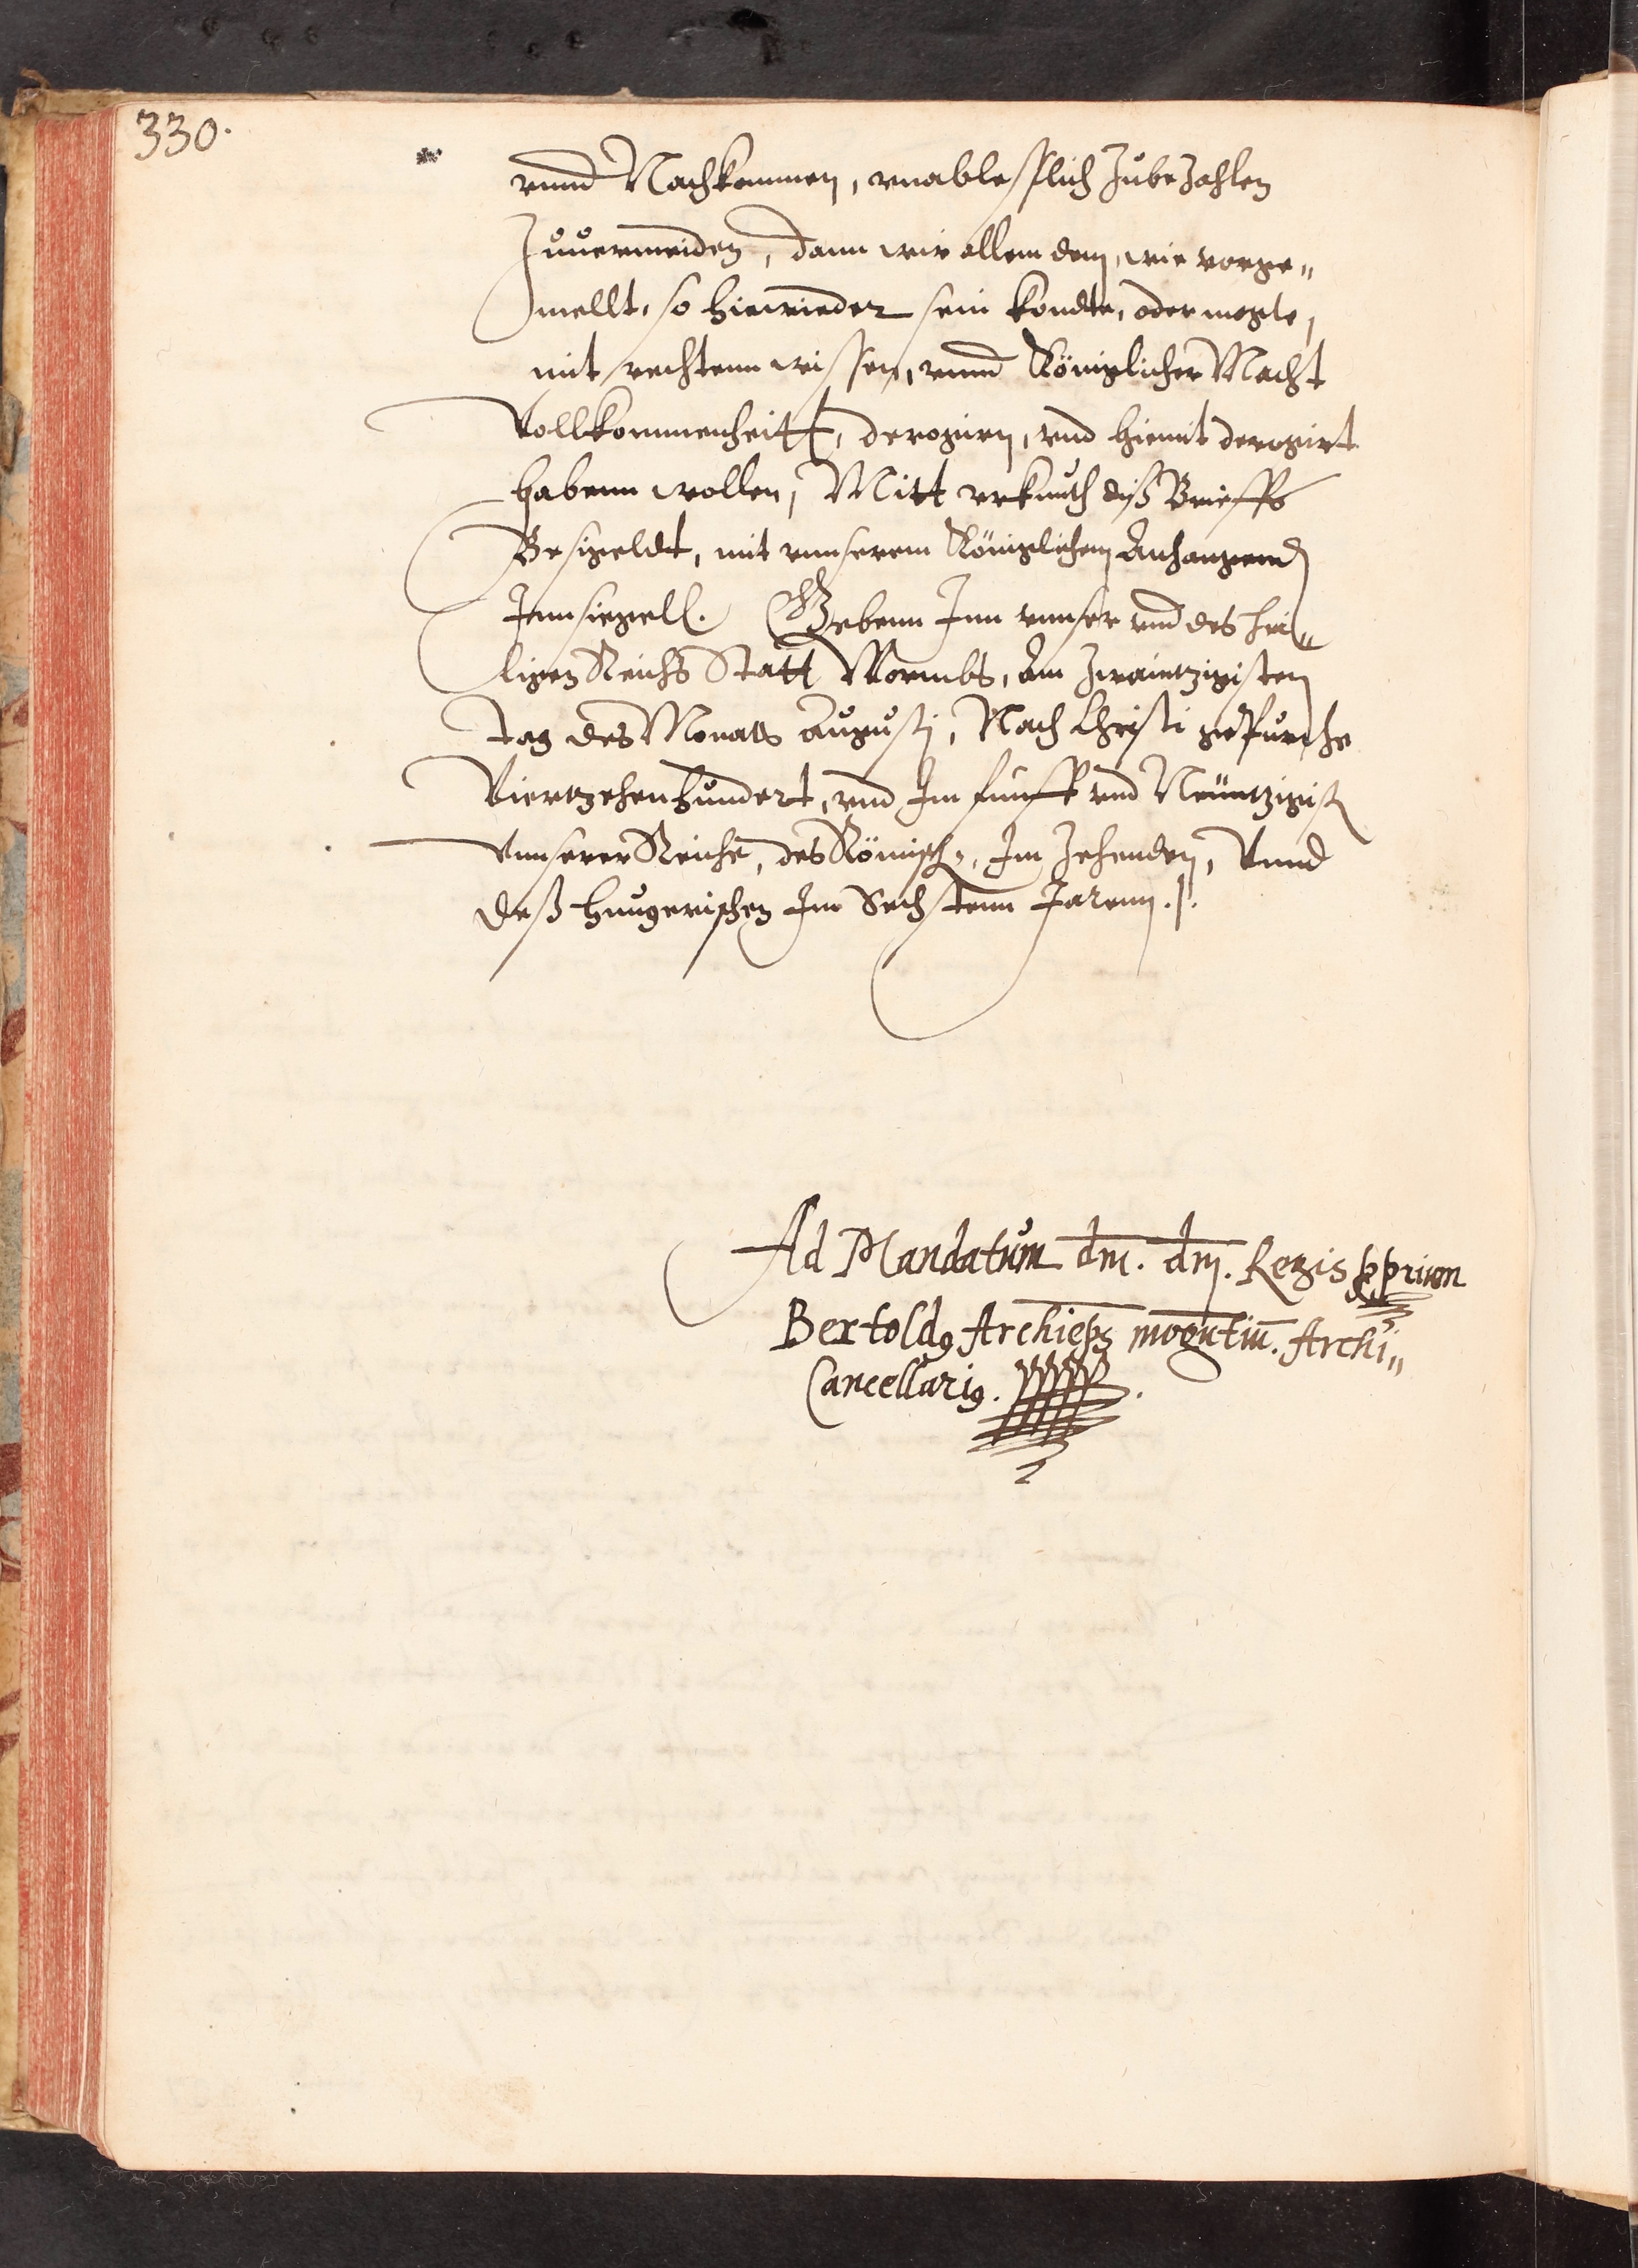 330.
vnnd Nachkommen, vnableßlich zubezahlen
zuuermeiden, dann wir allem dem, wie vorge„
mellt, so hiewieder sein kondte, oder mogte,
mit rechtem wissen, vnnd Königlicher Macht
Vollkommenheitt, derogirn, vnd hiemit derogirt
habenn wollen, Mitt vrkundh diß Brieffs
Besigeldt, mit vnnserem Königlichem Anhangend
Jnnsiegell. Gebenn Jnn vnnser vnd des hei„
ligen Reichs Statt Wormbs, Am zwaintzigisten
tag des Monats Augustj, Nach Christi gepurthe
Viertzehenhundert, vnd Jm funff vnd Neüntzigist
Vnnserer Reiche, des Römisch, Jm zehenden, Vnnd
deß Hungerischen Jm Sechstenn Jarenn.
Ad Mandatum dm. dnj. Regis pprium
Bertoldꝯ Archiepꝯ mogutiū. Archi„
Cancellariꝯ.